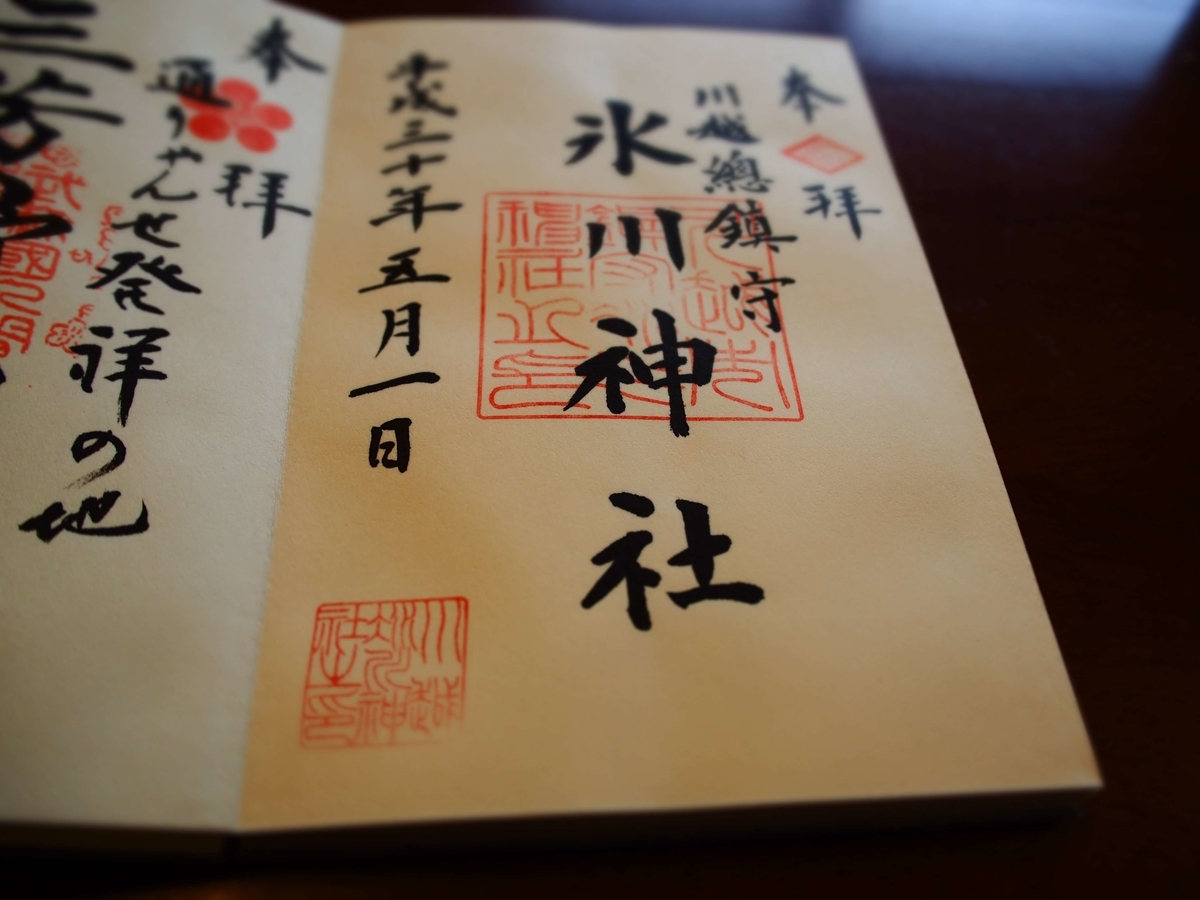 奉拝
川越總鎮守
氷川神社
平成三十年五月一日
奉拝
通りゃんせ発祥の地
三芳野